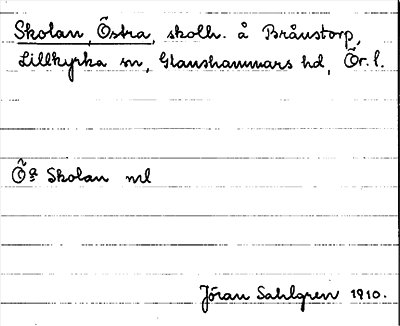 Skolan, Östra, skolh. å Brånstorp,
Lillkyrka sn, Glanshammars hd, Ör. l.
Öa Skolan ml
Jöran Sahlgren 1910.